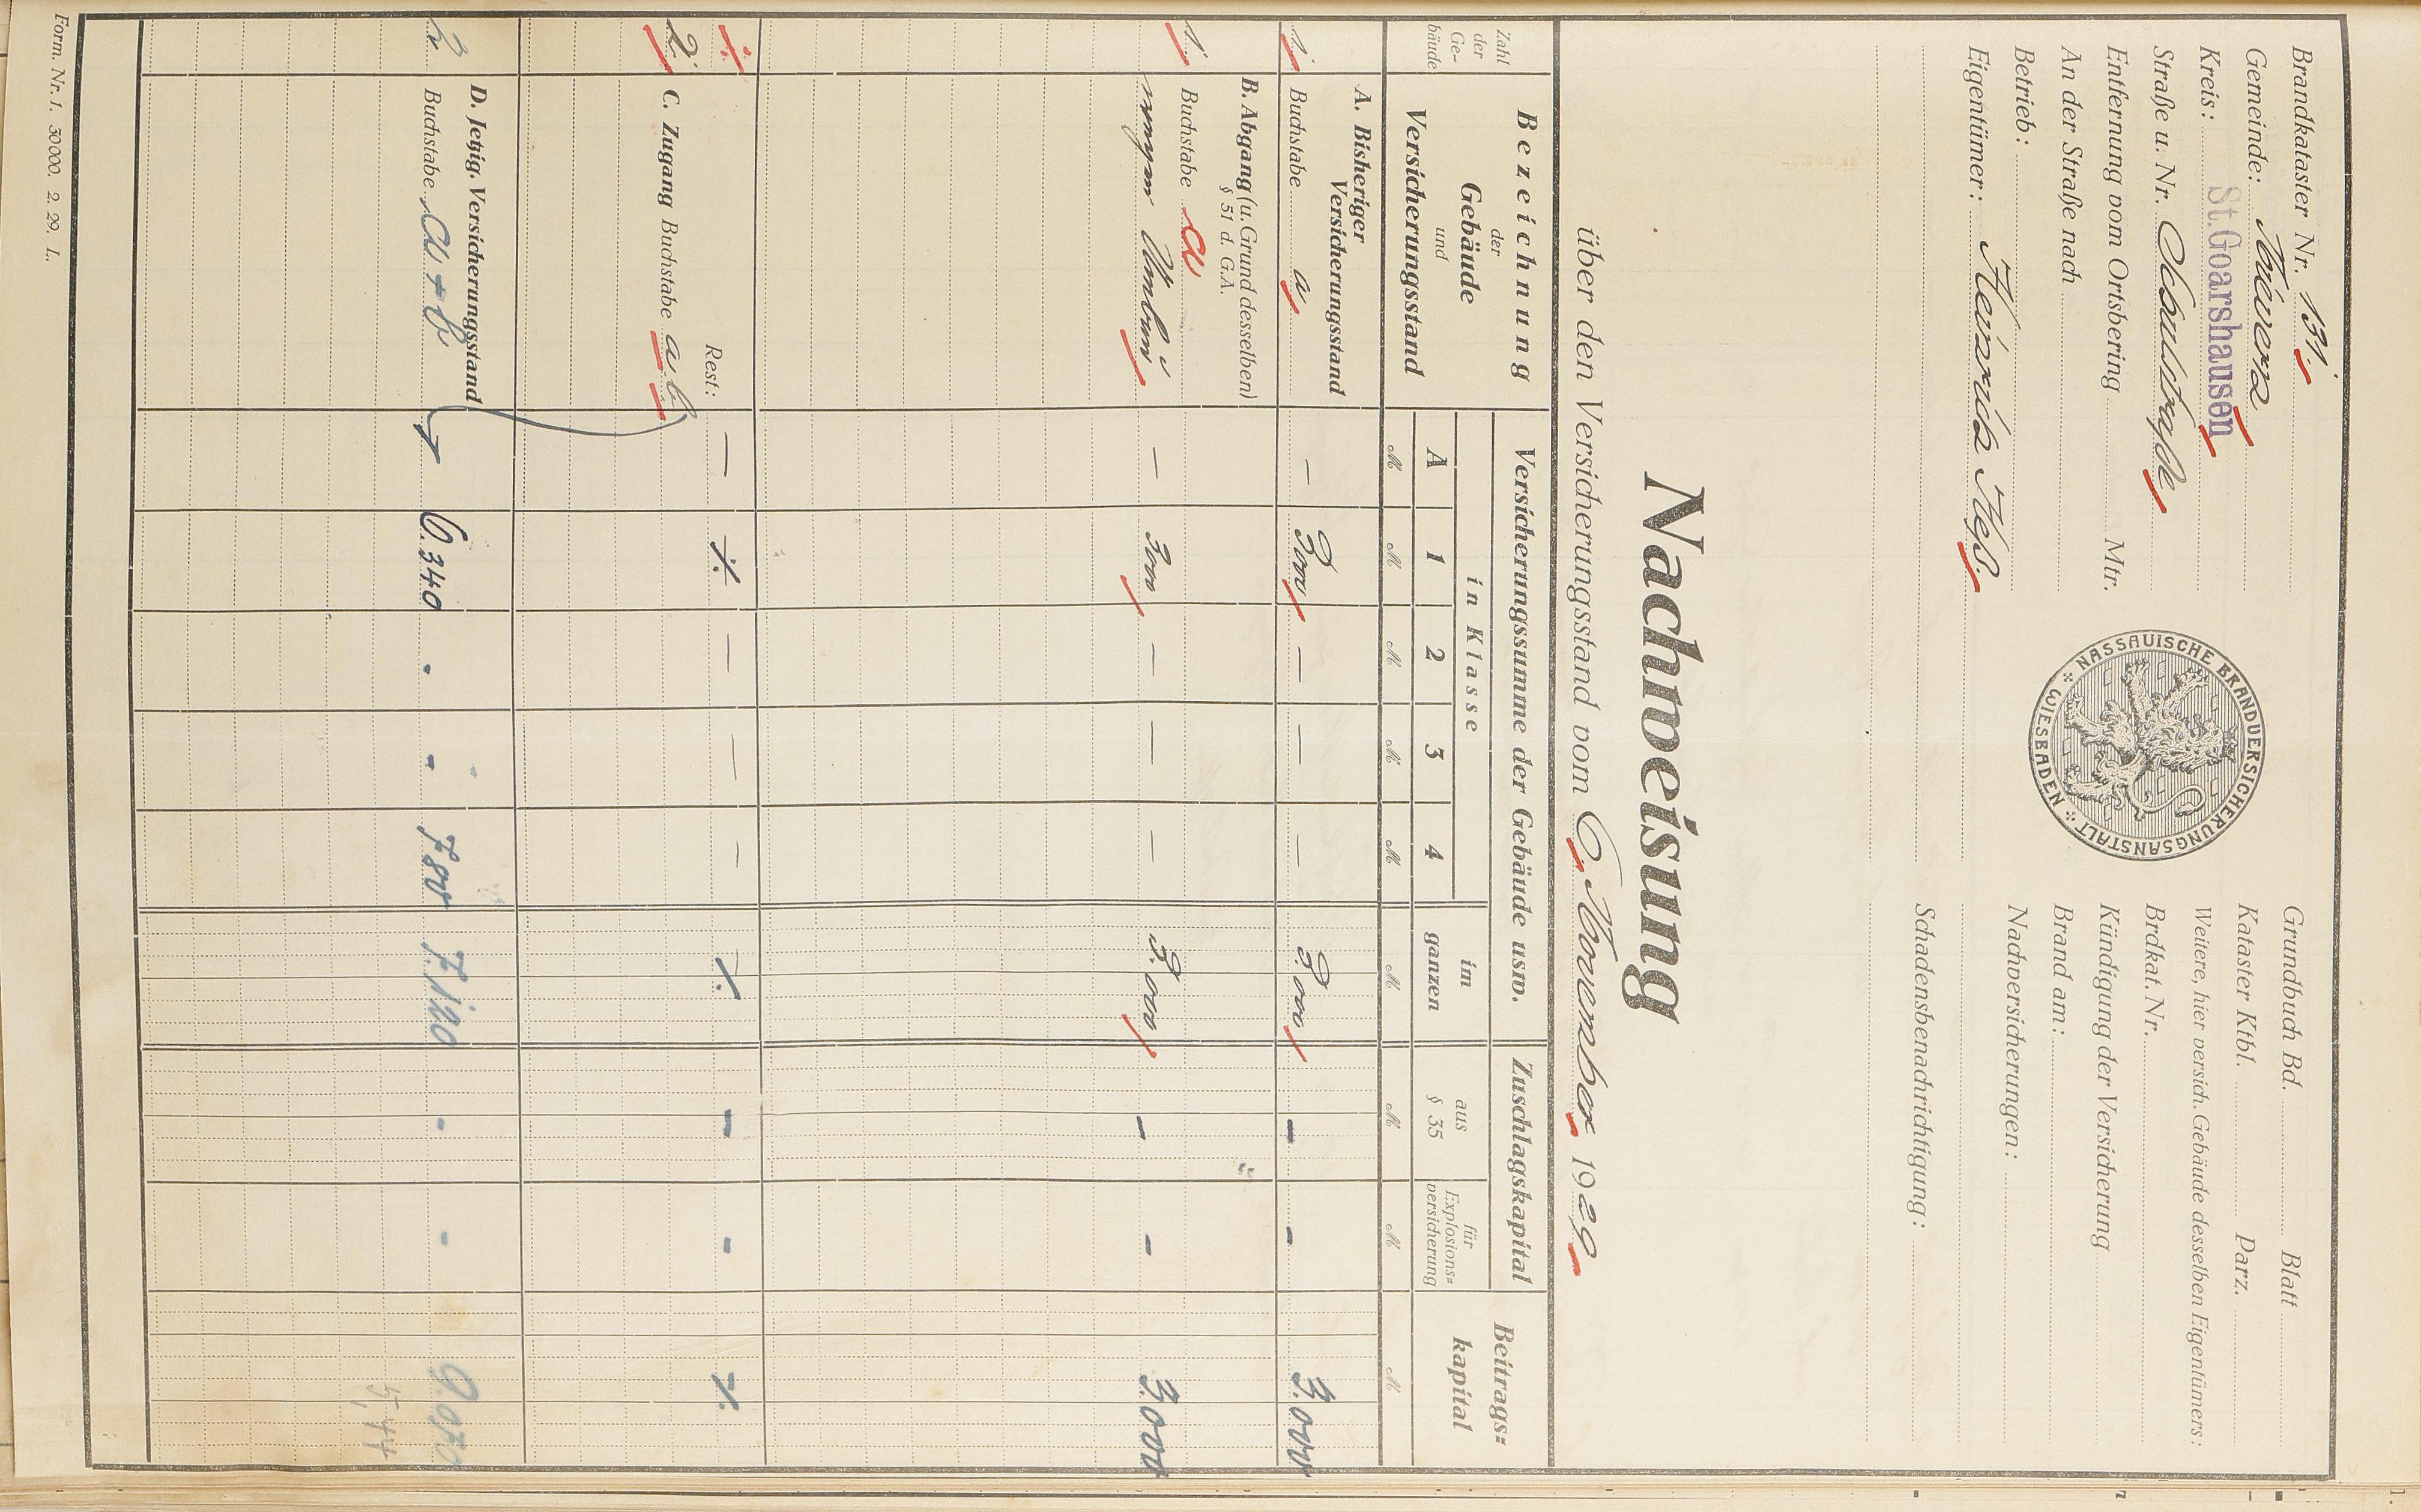 Brandkataster Nr. 131.
Gemeinde: Miwerz
Kreis: St. Goarshausen
Straße u. Nr.
Entfernung vom Ortsbering Mtr.
An der Straße nach
Betrieb:
Eigentümer: Heinrich Heß.
NASSAUISCHE BRANDVERSICHERUNGSANSTALT
WIESBADEN
Grundbuch Bd. Blatt
Kataster Ktbl. Parz.
Weitere, hier versich. Gebäude desselben Eigentümers:
Brdkat. Nr.
Kündigung der Versicherung
Brand am:
Nachversicherungen:
Schadensbenachrichtigung:
Nachweisung
über den Versicherungsstand vom 6. November 1929
Zahl der Ge- bäude
Bezeichnung der Gebäude und Versicherungsstand
Versicherungssumme der Gebäude usw.
in Klasse
A 1 2 3 4
im ganzen
Zuschlagskapital
aus § 35
für Explosions- versicherung
Beitrags- kapital
M M M M M M M M M
A. Bisheriger Versicherungsstand
1. Buchstabe a — 3000 — — — 3000 - - 3.000
B. Abgang (u. Grund desselben)
§ 51 d. G.A.
1. Buchstabe a
wegen Umbau — 3000 — — — 3.000 - - 3.000
Rest: — ·/. — — — ·/. - - ·/.
2. C. Zugang Buchstabe a b.
D. Jetzig. Versicherungsstand
2 Buchstabe a + b 6.340 - -
5,44
Form. Nr. 1. 30000. 2. 29. L.